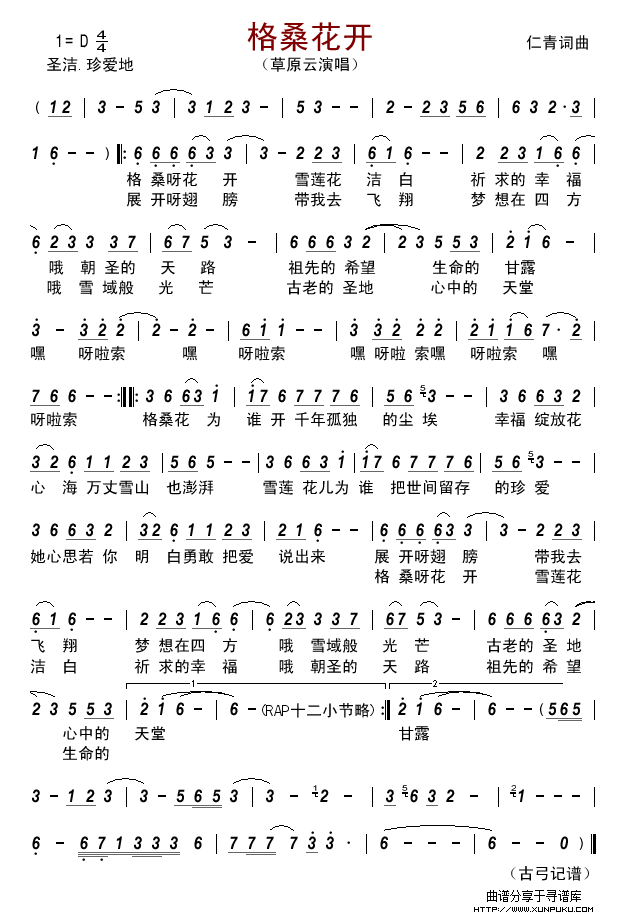 格桑花开
1= D 4/4
仁青词曲
圣洁.珍爱地
（草原云演唱）
( 1 2 | 3 - 5 3 | 3 1 2 3 - | 5 3 - - | 2 - 2 3 5 6 | 6 3 2· 3 |
1 6 - - ) ‖: 6 6 6 6 3 3 | 3 - 2 2 3 | 6 1 6 - - | 2 2 2 3 1 6 6 |
格 桑呀花 开 雪莲花 洁白 祈 求的 幸 福
展 开呀翅 膀 带我去 飞翔 梦 想在 四 方
6 2 3 3 3 7 | 6 7 5 3 - | 6 6 6 6 3 2 | 2 3 5 5 3 | 2 1 6 - |
哦 朝 圣的 天 路 祖先的 希望 生命的 甘露
哦 雪 域般 光 芒 古老的 圣地 心中的 天堂
3 - 3 2 2 | 2 - 2 - | 6 1 1 - - | 3 3 2 2 2 | 2 1 1 6 7· 2 |
嘿 呀啦索 嘿 呀啦索 嘿 呀啦 索嘿 呀啦索 嘿
7 6 6 - - :‖: 3 6 6 3 1 | 1 7 6 7 7 7 6 | 5 6 5 3 - - | 3 6 6 3 2 |
呀啦索 格桑花 为 谁 开 千年孤独 的尘 埃 幸福 绽放花
3 2 6 1 2 2 3 | 5 6 5 - - | 3 6 6 3 1 | 1 7 6 7 7 7 6 | 5 6 5 3 - - |
心 海 万丈雪山 也澎湃 雪莲 花儿为 谁 把世间留存 的珍 爱
3 6 6 3 2 | 3 2 6 1 1 2 3 | 2 1 6 - - | 6 6 6 6 3 3 | 3 - 2 2 3 |
她心思若 你 明 白勇敢 把爱 说出来 展 开呀翅 膀 带我去
格 桑呀花 开 雪莲花
6 1 6 - - | 2 2 2 3 1 6 6 | 6 2 3 3 3 7 | 6 7 5 3 - | 6 6 6 6 3 2 |
飞 翔 梦 想在四 方 哦 雪域般 光 芒 古老的 圣 地
洁 白 祈 求的幸 福 哦 朝圣的 天 路 祖先的 希 望
1 2
2 3 5 5 3 | 2 1 6 - | 6 - (RAP十二小节略) :‖ 2 1 6 - | 6 - - (5 6 5 |
心中的 天堂 甘露
生命的
3 - 1 2 3 | 3 - 5 6 5 3 | 3 - 1 2 - | 3 5 6 3 2 | 2 1 - - - |
6 - 6 7 1 3 3 3 6 | 6 - - - | 7 7 7 7 3 3· | 6 - - - | 6 - - 0 ) ‖
（古弓记谱）
曲谱分享于寻谱库
HTTP://WWW.XUNPUKU.COM